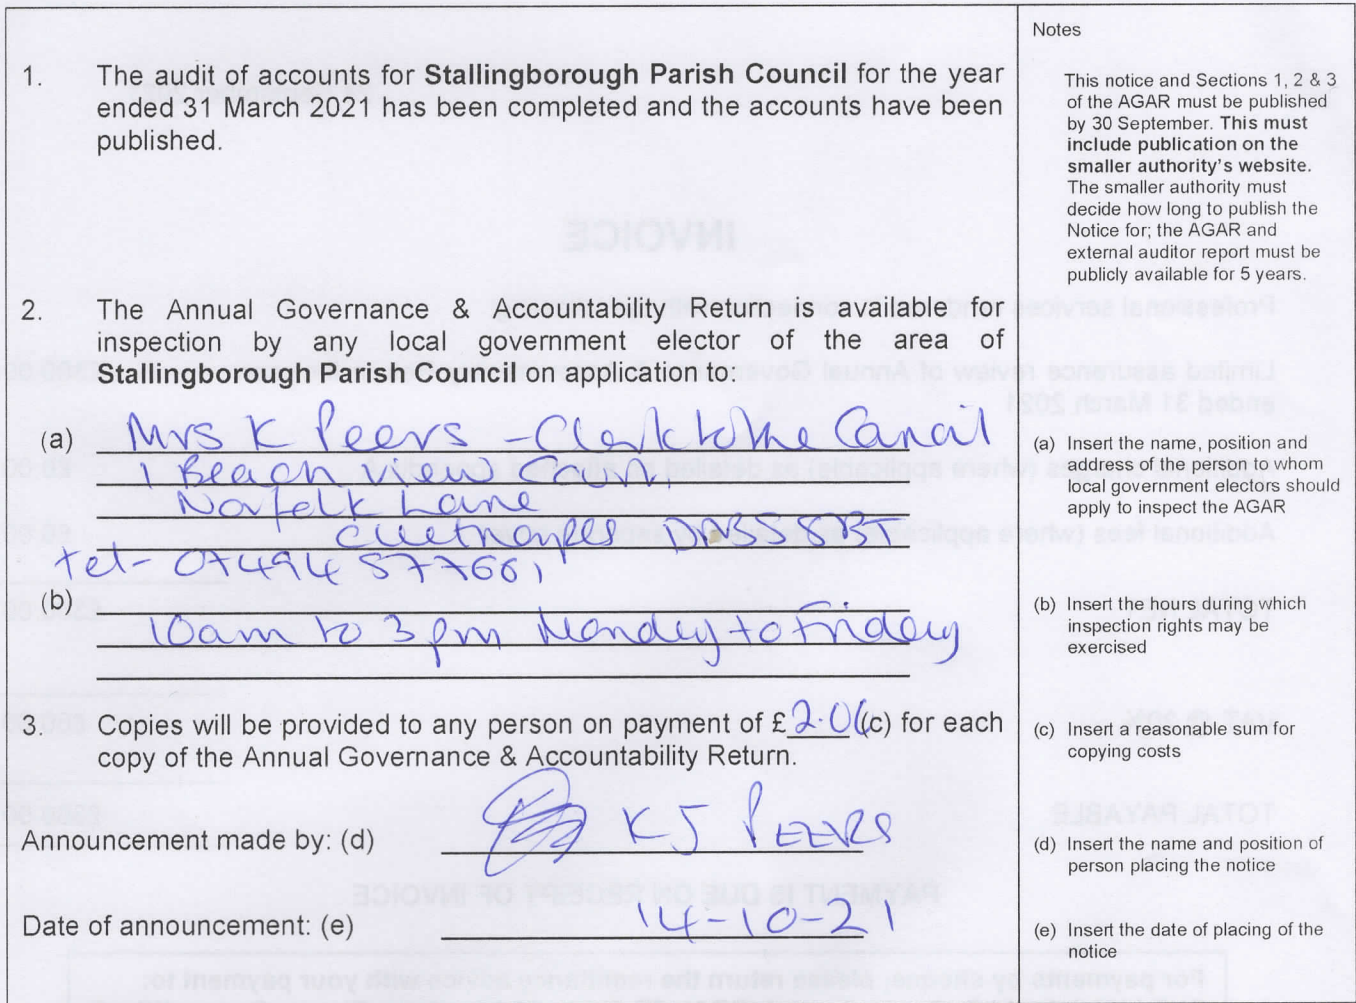 1. The audit of accounts for Stallingborough Parish Council for the year
ended 31 March 2021 has been completed and the accounts have been
published.
2. The Annual Governance & Accountability Return is available for
inspection by any local government elector of the area of
Stallingborough Parish Council on application to:
(a) Mrs K Peers - Clerk to the Council
1 Beach View Court,
Norfolk Lane
Cleethorpes DN35 8BT
tel- 07494 577661
(b)
10am to 3pm Monday to Friday
3. Copies will be provided to any person on payment of £2.00 (c) for each
copy of the Annual Governance & Accountability Return.
Announcement made by: (d) K J PEERS
Date of announcement: (e) 14-10-21
Notes
This notice and Sections 1, 2 & 3
of the AGAR must be published
by 30 September. This must
include publication on the
smaller authority's website.
The smaller authority must
decide how long to publish the
Notice for; the AGAR and
external auditor report must be
publicly available for 5 years.
(a) Insert the name, position and
address of the person to whom
local government electors should
apply to inspect the AGAR
(b) Insert the hours during which
inspection rights may be
exercised
(c) Insert a reasonable sum for
copying costs
(d) Insert the name and position of
person placing the notice
(e) Insert the date of placing of the
notice
INVOICE
TOTAL PAYABLE
PAYMENT IS DUE ON RECEIPT OF INVOICE